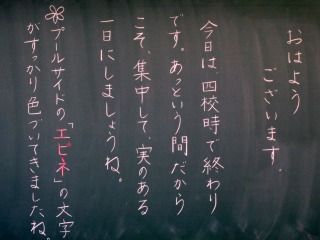 おはよう
ございます。
今日は、四校時で終わり
です。あっという間だから
こそ、集中して、実のある
一日にしましょうね。
プールサイドの「エビネ」の大字
がすっかり色づいてきましたね。